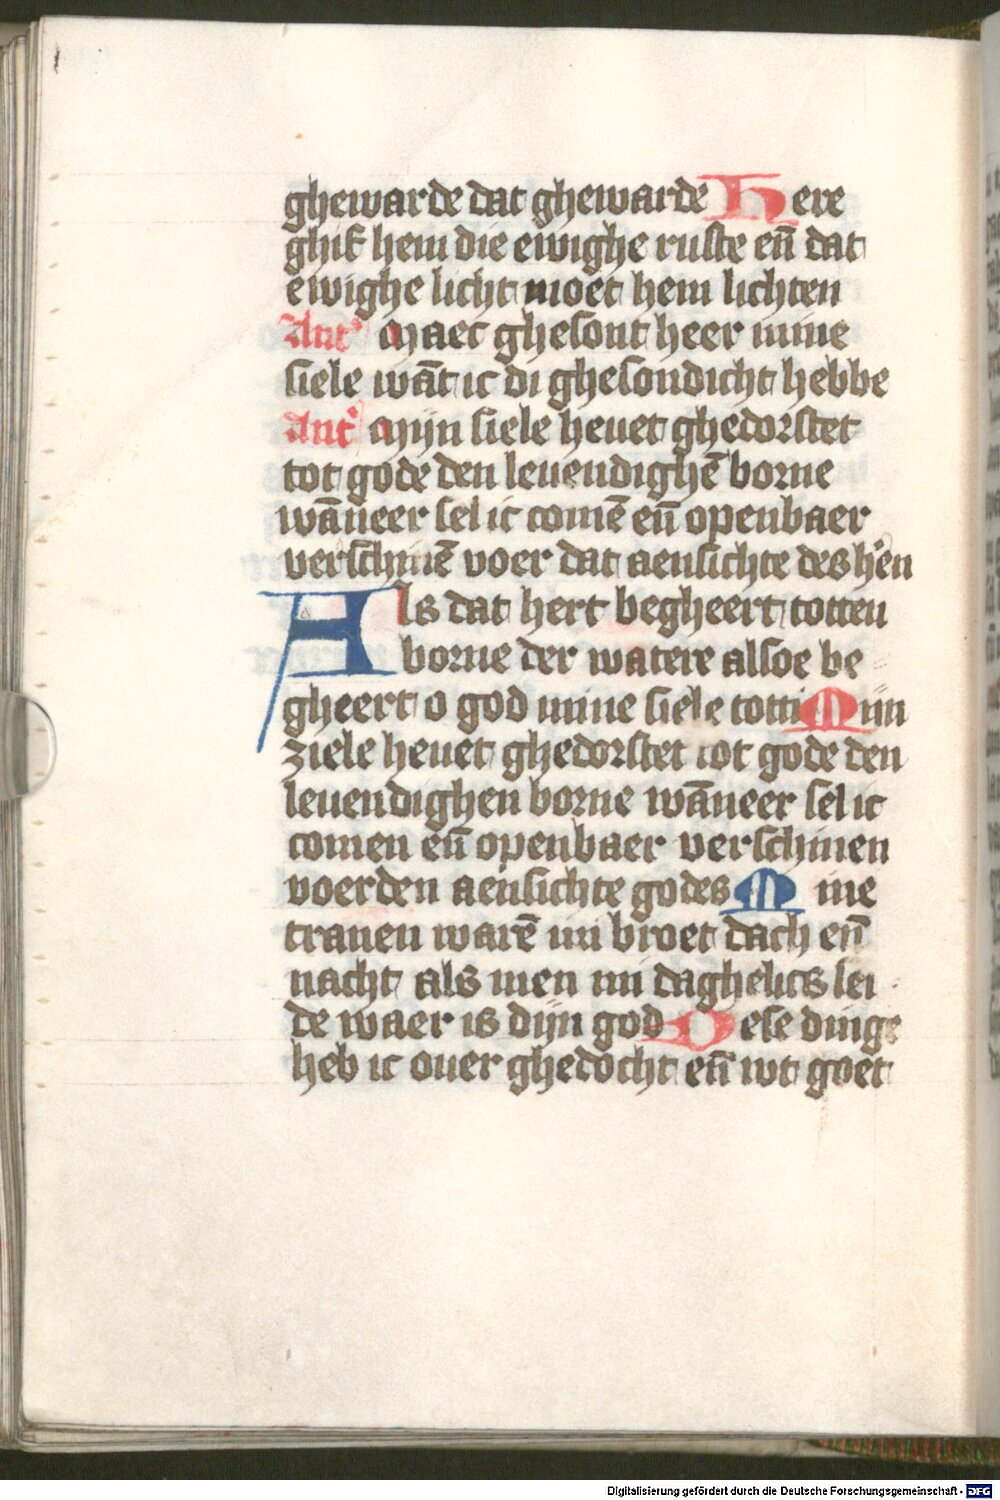 ghewarde dat ghewarde Here
ghif hem die ewighe ruste en̄ dat
ewighe licht moet hem lichten
Ant' Maect ghesont heer mine
siele wāt ic di ghesondicht hebbe
Ant' Mijn siele heuet ghedorstet
tot gode den leuendighē borne
wāneer sel ic comē en̄ openbaer
verschinē voer dat aensichte des h'en
Als dat hert begheert totten
borne der watere alsoe be
gheert o god mine siele totti Mijn
ziele heuet ghedorstet tot gode den
leuendighen borne wāneer sel ic
comen en̄ openbaer verschinen
voerden aensichte godes Mine
tranen warē mi broet dach en̄
nacht als men mi daghelics sei
de waer is dijn god Dese dinge
heb ic ouer ghedocht en̄ wt goet
Digitalisierung gefördert durch die Deutsche Forschungsgemeinschaft - DFG